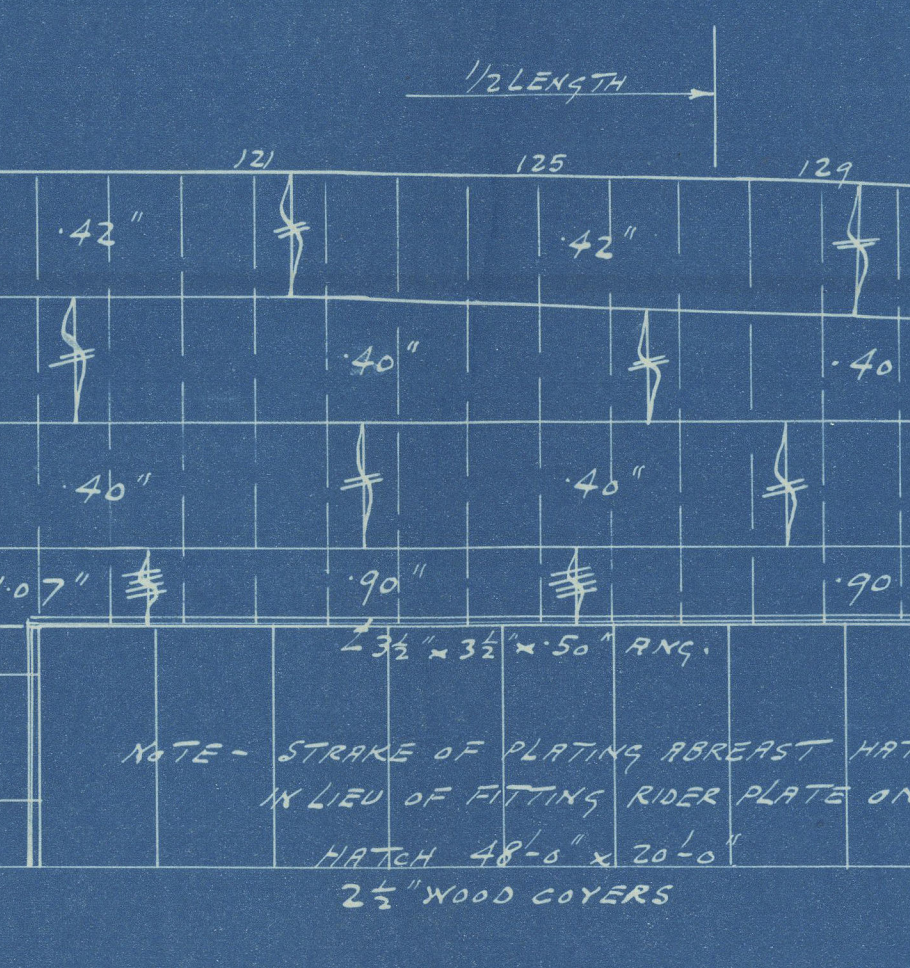 1/2 LENGTH
121 125 129
·42" ·42"
·40" ·40
·40" ·40"
1·07" ·90" ·90
L 3½" x 3½" x ·50" ANG.
NOTE - STRAKE OF PLATING ABREAST HAT
IN LIEU OF FITTING RIDER PLATE ON
HATCH 48'-0" x 20'-0"
2½" WOOD COVERS